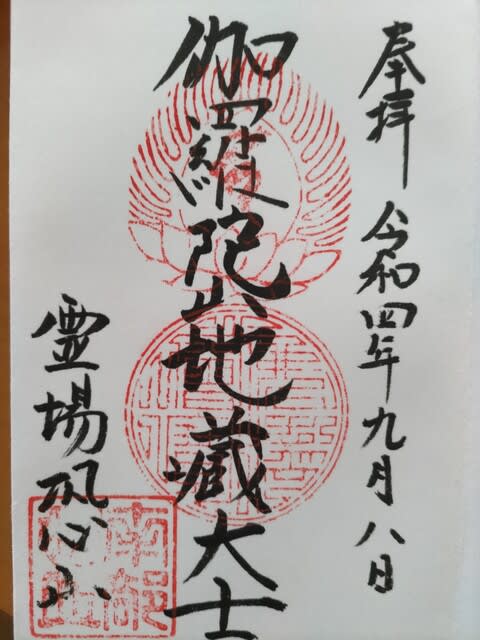 奉拝 令和四年九月八日
伽羅陀山地蔵大士
霊場恐山
南部